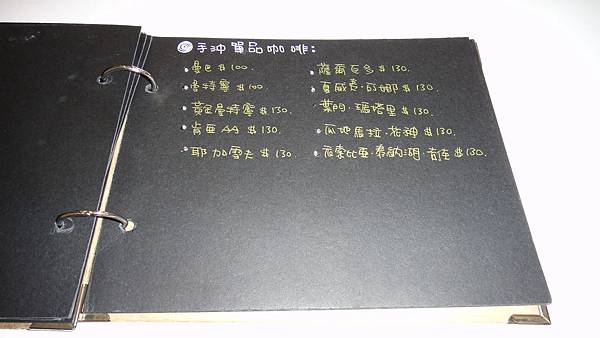 手沖單品咖啡:
曼巴 $100.
曼特寧 $100.
黃金曼特寧 $130.
肯亞AA $130.
耶加雪夫 $130.
薩爾瓦多 $130.
夏威夷·可娜 $130.
葉門·瑪塔里 $130.
瓜地馬拉·花神 $130.
衣索比亞·泰納湖·日曬 $130.